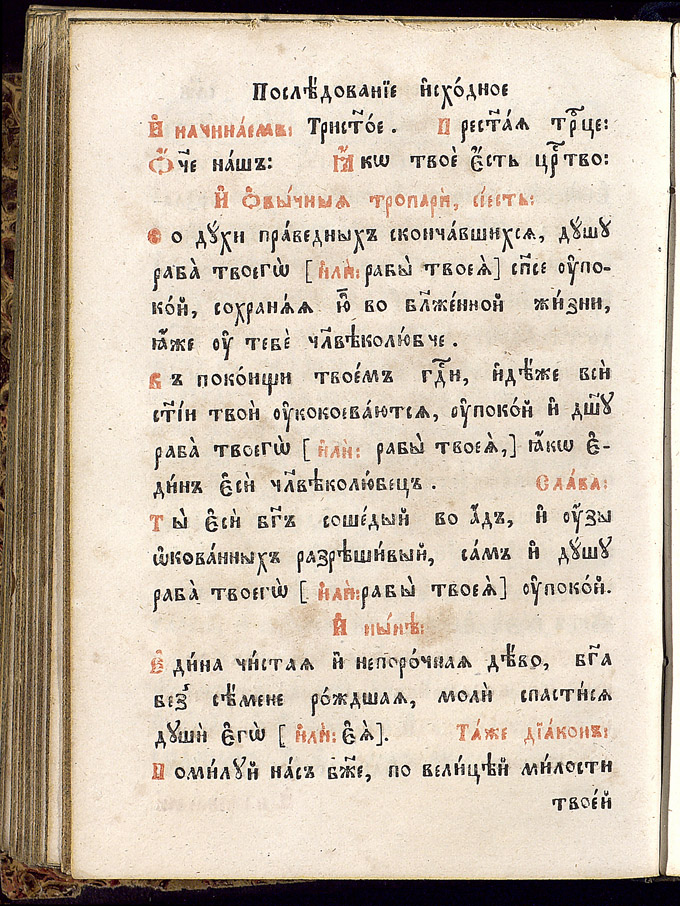 Послѣ́дованїе и҆схо́дное
И҆ начина́емъ: Трист҃о́е. Прест҃а́ѧ трⷪ҇це:
Ѻ҆́ч҃е на́шъ: Ꙗ҆́кѡ твоѐ є҆́сть црⷭ҇тво:
И҆ ѻ҆бы́чныѧ тропарѝ, сїе́сть:
Со дꙋ́хи пра́ведныхъ сконча́вшихсѧ, дꙋ́шꙋ
раба̀ твоегѡ̀ [и҆лѝ: рабы̀ твоеѧ̀] сп҃се ᲂу҆по-
ко́й, сохранѧ́ѧ ю҆̀ во бл҃же́нной жи́зни,
ꙗ҆́же ᲂу҆ тебѐ чл҃вѣколю́бче.
Въ поко́ищи твое́мъ гдⷭ҇и, и҆дѣ́же всѝ
ст҃і́и твоѝ ᲂу҆кокоева́ютсѧ, ᲂу҆поко́й и҆ дш҃ꙋ
раба̀ твоегѡ̀ [и҆лѝ: рабы̀ твоеѧ̀,] ꙗ҆́кѡ є҆-
ди́нъ є҆сѝ чл҃вѣколю́бецъ. Сла́ва:
Ты̀ є҆сѝ бг҃ъ соше́дый во а҆́дъ, и҆ ᲂу҆́зы
ѡ҆кова́нныхъ разрѣши́вый, са́мъ и҆ дꙋ́шꙋ
раба̀ твоегѡ̀ [и҆лѝ: рабы̀ твоеѧ̀] ᲂу҆поко́й.
И҆ ны́нѣ:
Є҆ди́на чи́стаѧ и҆ непоро́чнаѧ дѣ́во, бг҃а
без̾ сѣ́мене ро́ждшаѧ, молѝ спасти́сѧ
дꙋшѝ є҆гѡ̀ [и҆лѝ: є҆ѧ̀]. Та́же дїа́конъ:
Поми́лꙋй на́съ бж҃е, по вели́цѣй ми́лости
твое́й